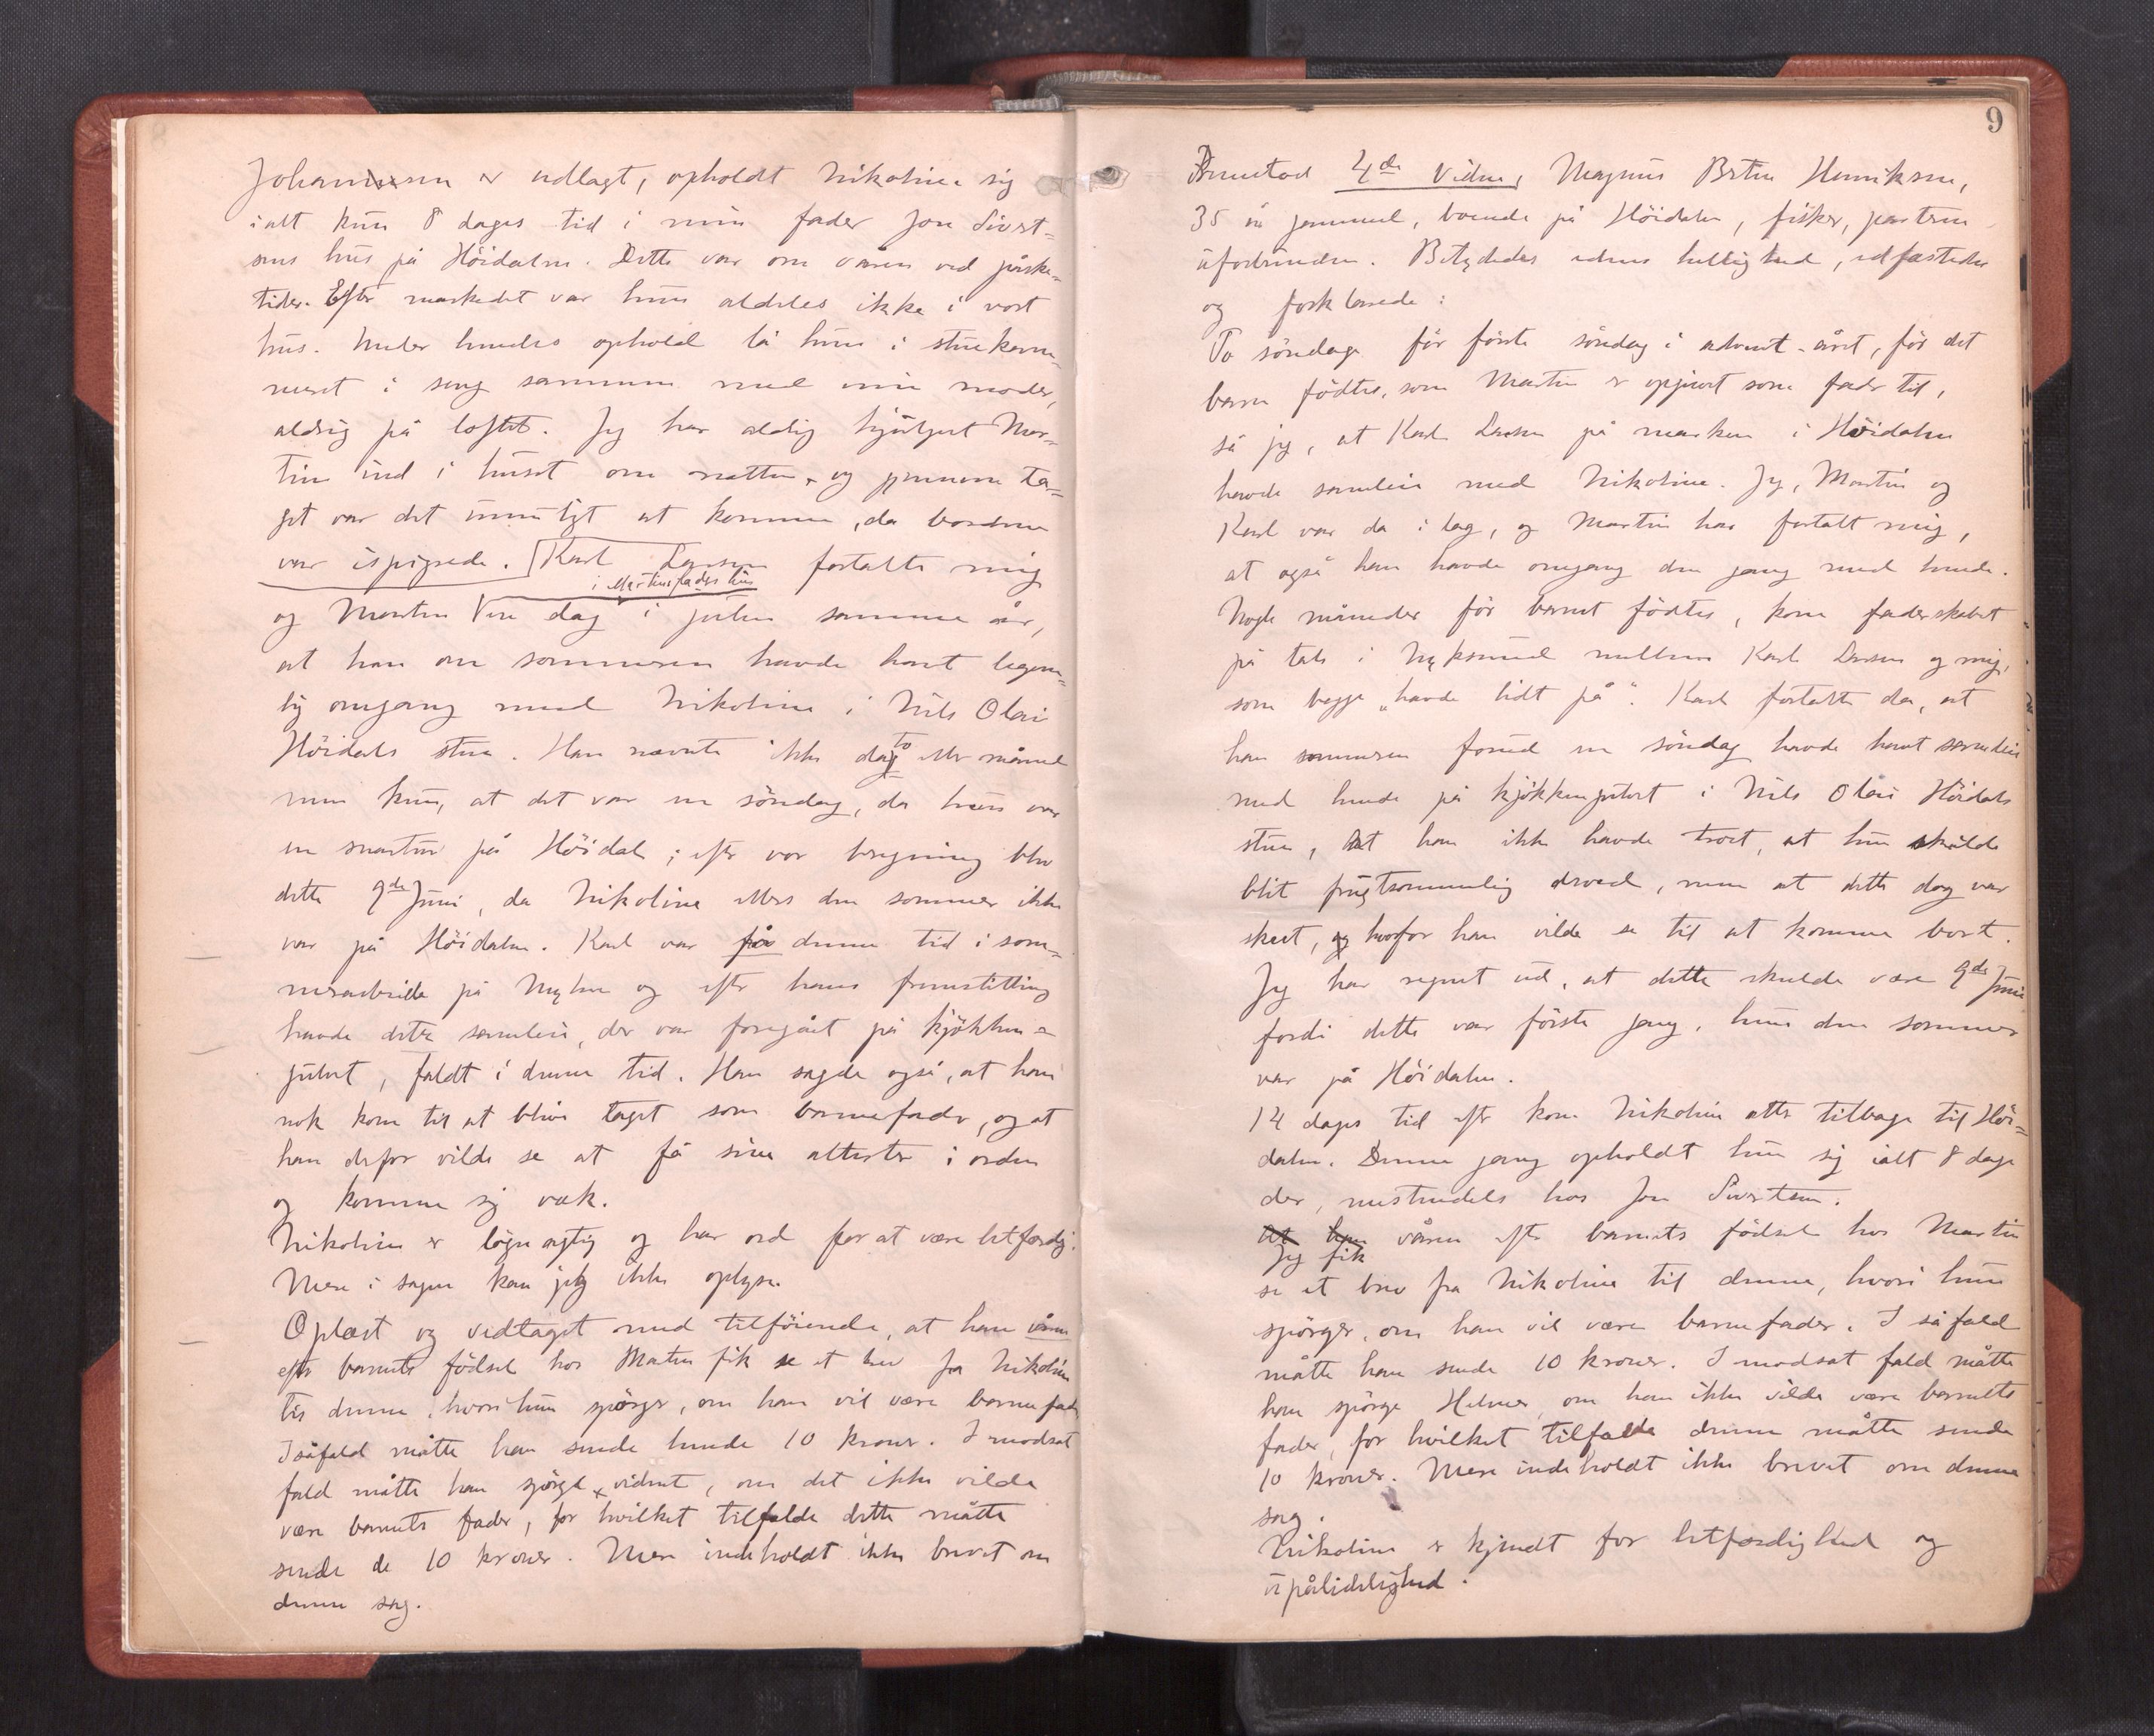 Johannesen er udlagt, opholdt Nikoline sig
ialt kun 8 dages tid i min fader Jon Sivert=
sens hus på Höidalen. Dette var om våren ved påske-
tider. Efter markedet var hun aldeles ikke i vort
hus. Under hendes ophold lå hun i stuekam-
meret i seng sammen med min moder,
aldrig på loftet. Jeg har aldrig hjulpet Mar-
tin ind i huset om natten, og gjennem ta-
get var det umuligt at komme, da bordene
var ispigrede. Karl Larsen fortalte mig
i Martins faders hus
og Martin den dag i julen samme år,
at han om sommeren havde havt legem-
lig omgang med Nikoline i Nils Olai
Höidals stue. Han nævnte ikke dato eller måned
men kun, at det var en söndag, da hun var
en snartur på Höidal; efter vor beregning blev
dette 9de Juni, da Nikoline ellers den sommer ikke
var på Höidalen. Karl var på denne tid i som-
merarbeide på Myhre og efter hans fremstilling
havde dette samleie, der var foregået på kjökken-
gulvet, faldt i denne tid. Han sagde også, at han
nok kom til at blive taget som barnefader, og at
han derfor vilde se at få sine attester i orden
og komme sig væk.
Nikoline er lögnagtig og har ord for at være letfærdig.
Mere i sagen kan jeg ikke oplyse.
Oplæst og vedtaget med tilföiende, at han våren
efter barnets födsel hos Martin fik se et brev fra Nikoline
til denne, hvori hun spörger, om han vil være barnefader
Isåfald måtte han sende hende 10 kroner. I modsat
fald måtte han spörge vidnet, om det ikke vilde
være barnets fader, for hvilket tilfælde dette måtte
sende de 10 kroner. Mere indeholdt ikke brevet om
denne sag.
9
Fremstod 4de Vidne, Magnus Henriksen,
35 år gammel, boende på Höidalen, fisker, parterne
uforbunden. Betydedes edens hellighed, edfæstedes
og forklarede:
To söndage för förste söndag i advent-året, för det
barn födtes, som Martin er opgivet som fader til,
så jeg, at Karl Larsen på marken i Höidalen
havde samleie med Nikoline. Jeg, Martin og
Karl var da i lag, og Martin har fortalt mig,
at også han havde omgang den gang med hende.
Nogle måneder för barnet födtes, kom faderskabet
på tale i Nyksund mellem Karl Larsen og mig,
som begge „havde lidt på“. Karl fortalte da, at
han sommeren forud en söndag havde havt samleie
med hende på kjökkengulvet i Nils Olai Höidals
stue, at han ikke havde troet, at hun skulde
blit frugtsommelig derved, men at dette dog var
skeet, og hvorfor han vilde se til at komme bort.
Jeg har regnet ud, at dette skulde være 9de Juni
fordi dette var förste gang, hun den sommer
var på Höidalen.
14 dages tid efter kom Nikoline atter tilbage til Höi=
dalen. Denne gang opholdt hun sig ialt 8 dage
der, mestendels hos Jon Sivertsen.
At han våren efter barnets födsel hos Martin
Jeg fik
se et brev fra Nikoline til denne, hvori hun
spörger, om han vil være barnefader. I såfald
måtte han sende 10 kroner. I modsat fald måtte
han spörge Helmer, om han ikke vilde være barnets
fader, for hvilket tilfælde denne måtte sende
10 kroner. Mere indeholdt ikke brevet om denne
sag.
Nikoline er kjendt for letfærdighed og
upålidelighed.